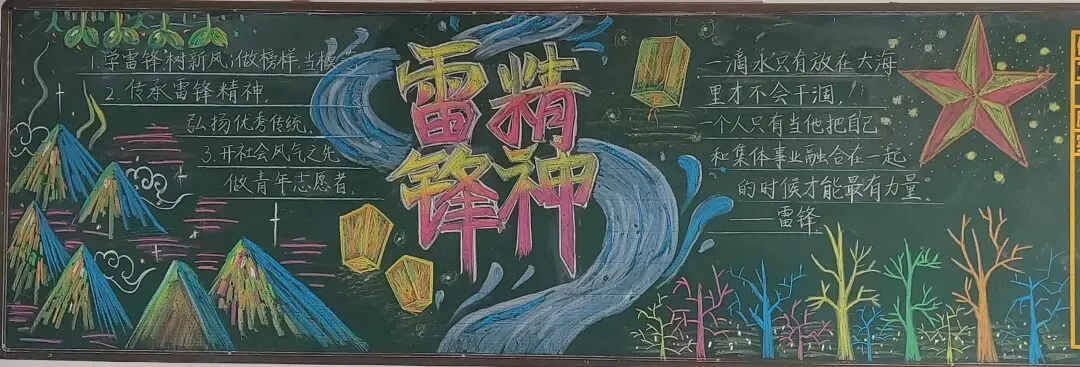 1.学雷锋树新风;做榜样当模
2.传承雷锋精神,
弘扬优秀传统.
3.开社会风气之先
做青年志愿者.
雷锋
精神
一滴水只有放在大海
里才不会干涸,
一个人只有当他把自己
和集体事业融合在一起
的时候才能最有力量。
——雷锋